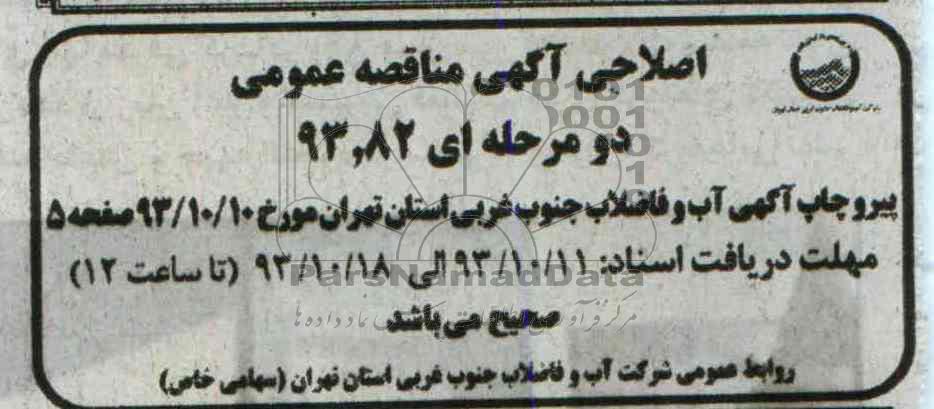 اصلاحی آگهی مناقصه عمومی
دو مرحله ای ۹۳٫۸۲
پیرو چاپ آگهی آب و فاضلاب جنوب غربی استان تهران مورخ ۹۳/۱۰/۱۰ صفحه ۵
مهلت دریافت اسناد: ۹۳/۱۰/۱۱ الی ۹۳/۱۰/۱۸ (تا ساعت ۱۲)
صحیح می باشد
روابط عمومی شرکت آب و فاضلاب جنوب غربی استان تهران (سهامی خاص)
ParsNamadData